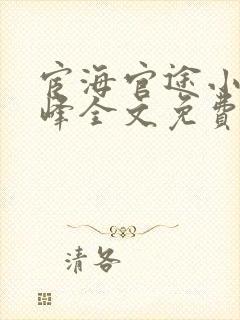 宦海官途小
峰全文免費
清各